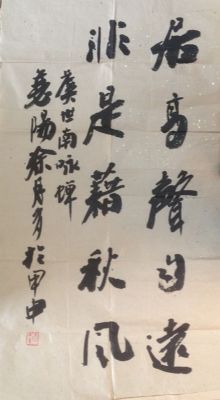 居高聲自遠
非是藉秋風
虞世南咏蟬
徐丹于甲申